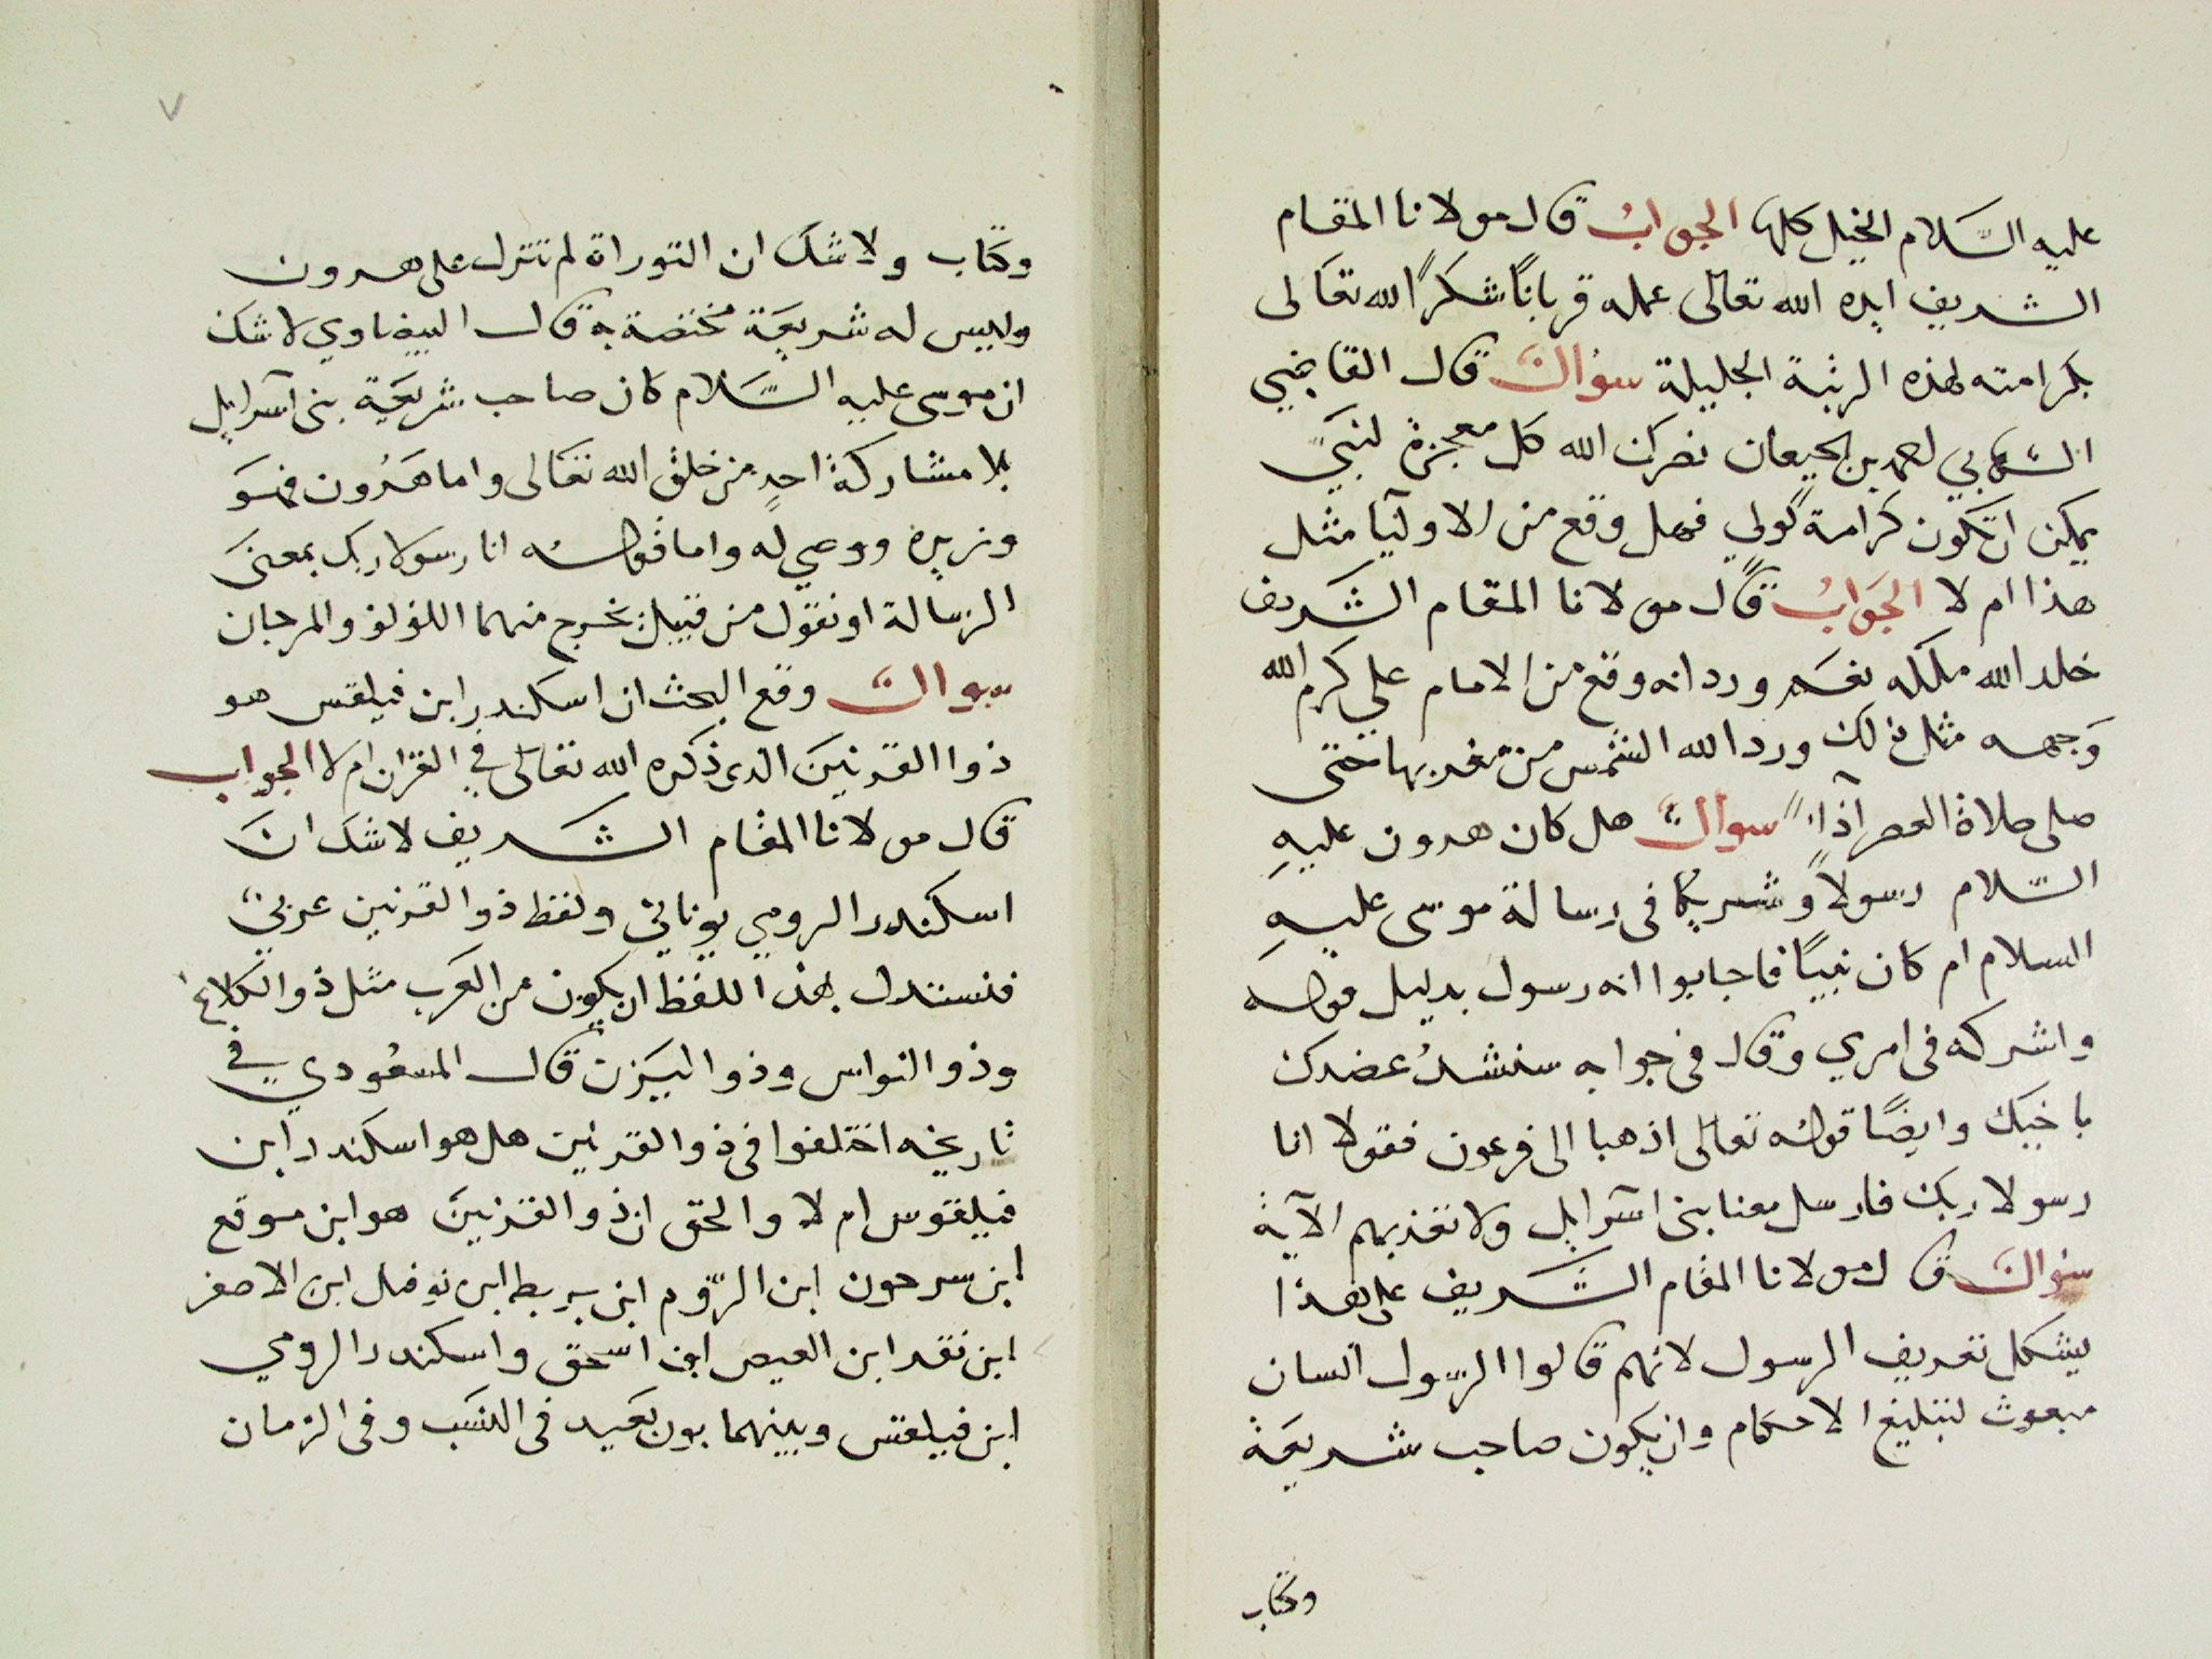 عليه السَّلام الخيل كلها الجوابُ قال مولانا المقام
الشريف ايده الله تعالى عمله قرباناً شكراً لله تعَالى
بكرامته لهذه الرتبة الجليلة سؤال قال القاضي
الشهابي احمد بن الجيعان نصرك الله كل معجزة لنبيّ
يمكن ان تكون كرامة لولي فهل وقع من الاوليآ مثل
هذا ام لا الجَوابُ قال مولانا المقام الشَريف
خلد الله ملكه نعَم ورد انه وقع من الامام علي كرم الله
وَجهه مثل ذلك ورد الله الشمس من مغربها حتى
صلى صلاة العصر آدآءً سوال هل كان هرون عليهِ
السّلام رسولاً وشريكا في رسالة موسى عليهِ
السلام ام كان نبيًا فاجابوا انه رسول بدليل قوله
واشركه في امري وقال في جوابه سنشدُ عضدك
باخيك وايضًا قوله تعالى اذهبا الى فرعون فقولا انا
رسولا ربك فارسل معنا بنى اسرآيل ولا تعذبهم الآية
سؤال قال مولانا المقام الشَريف على هذا
يشكل تعريف الرسول لانهم قالوا الرّسول انسان
مبعوث لتبليغ الاحكام وان يكون صاحب شريعَة
وكتاب
وكتاب ولا شك ان التوراة لم تنزل على هرون
وليس له شريعَة مختصة به قال البيضاوي لا شك
ان موسى عليه السَّلام كان صاحب شريعَة بنى اسرآيل
بلا مشاركة احدٍ من خلق الله تعَالى واما هَرُون فهوَ
وزيره ووصي له واما قوله انا رسولا ربك بمعنىَ
الرسالة او نقول من قبيل يخرج منهما اللؤلؤ والمرجان
سوال وقع البحث ان اسكندر ابن فيلقس هو
ذوا القرنينَ الذى ذكره الله تعالى في القرٰان ام لا الجواب
قال مولانا المقام الشريف لا شك انَ
اسكندر الرومي يوناني ولفظ ذو القرنين عربيّ
فنستدل بهذا اللفظ ان يكون من العَرب مثل ذو الكلاع
وذو النواس وذو اليَزن قال المسعُودي في
تاريخه اختلفوا في ذو القرنين هل هو اسكندر ابن
فيلقوس ام لا والحق ان ذو القرنينَ هو ابن موقع
ابن سرحون ابن الرّوم ابن بربط ابن نوفل ابن الاصفر
ابن نقد ابن العيص ابن اسحق واسكندر الرومي
ابن فيلقس وبينهما بون بعَيد فى النسَب وفى الزمان